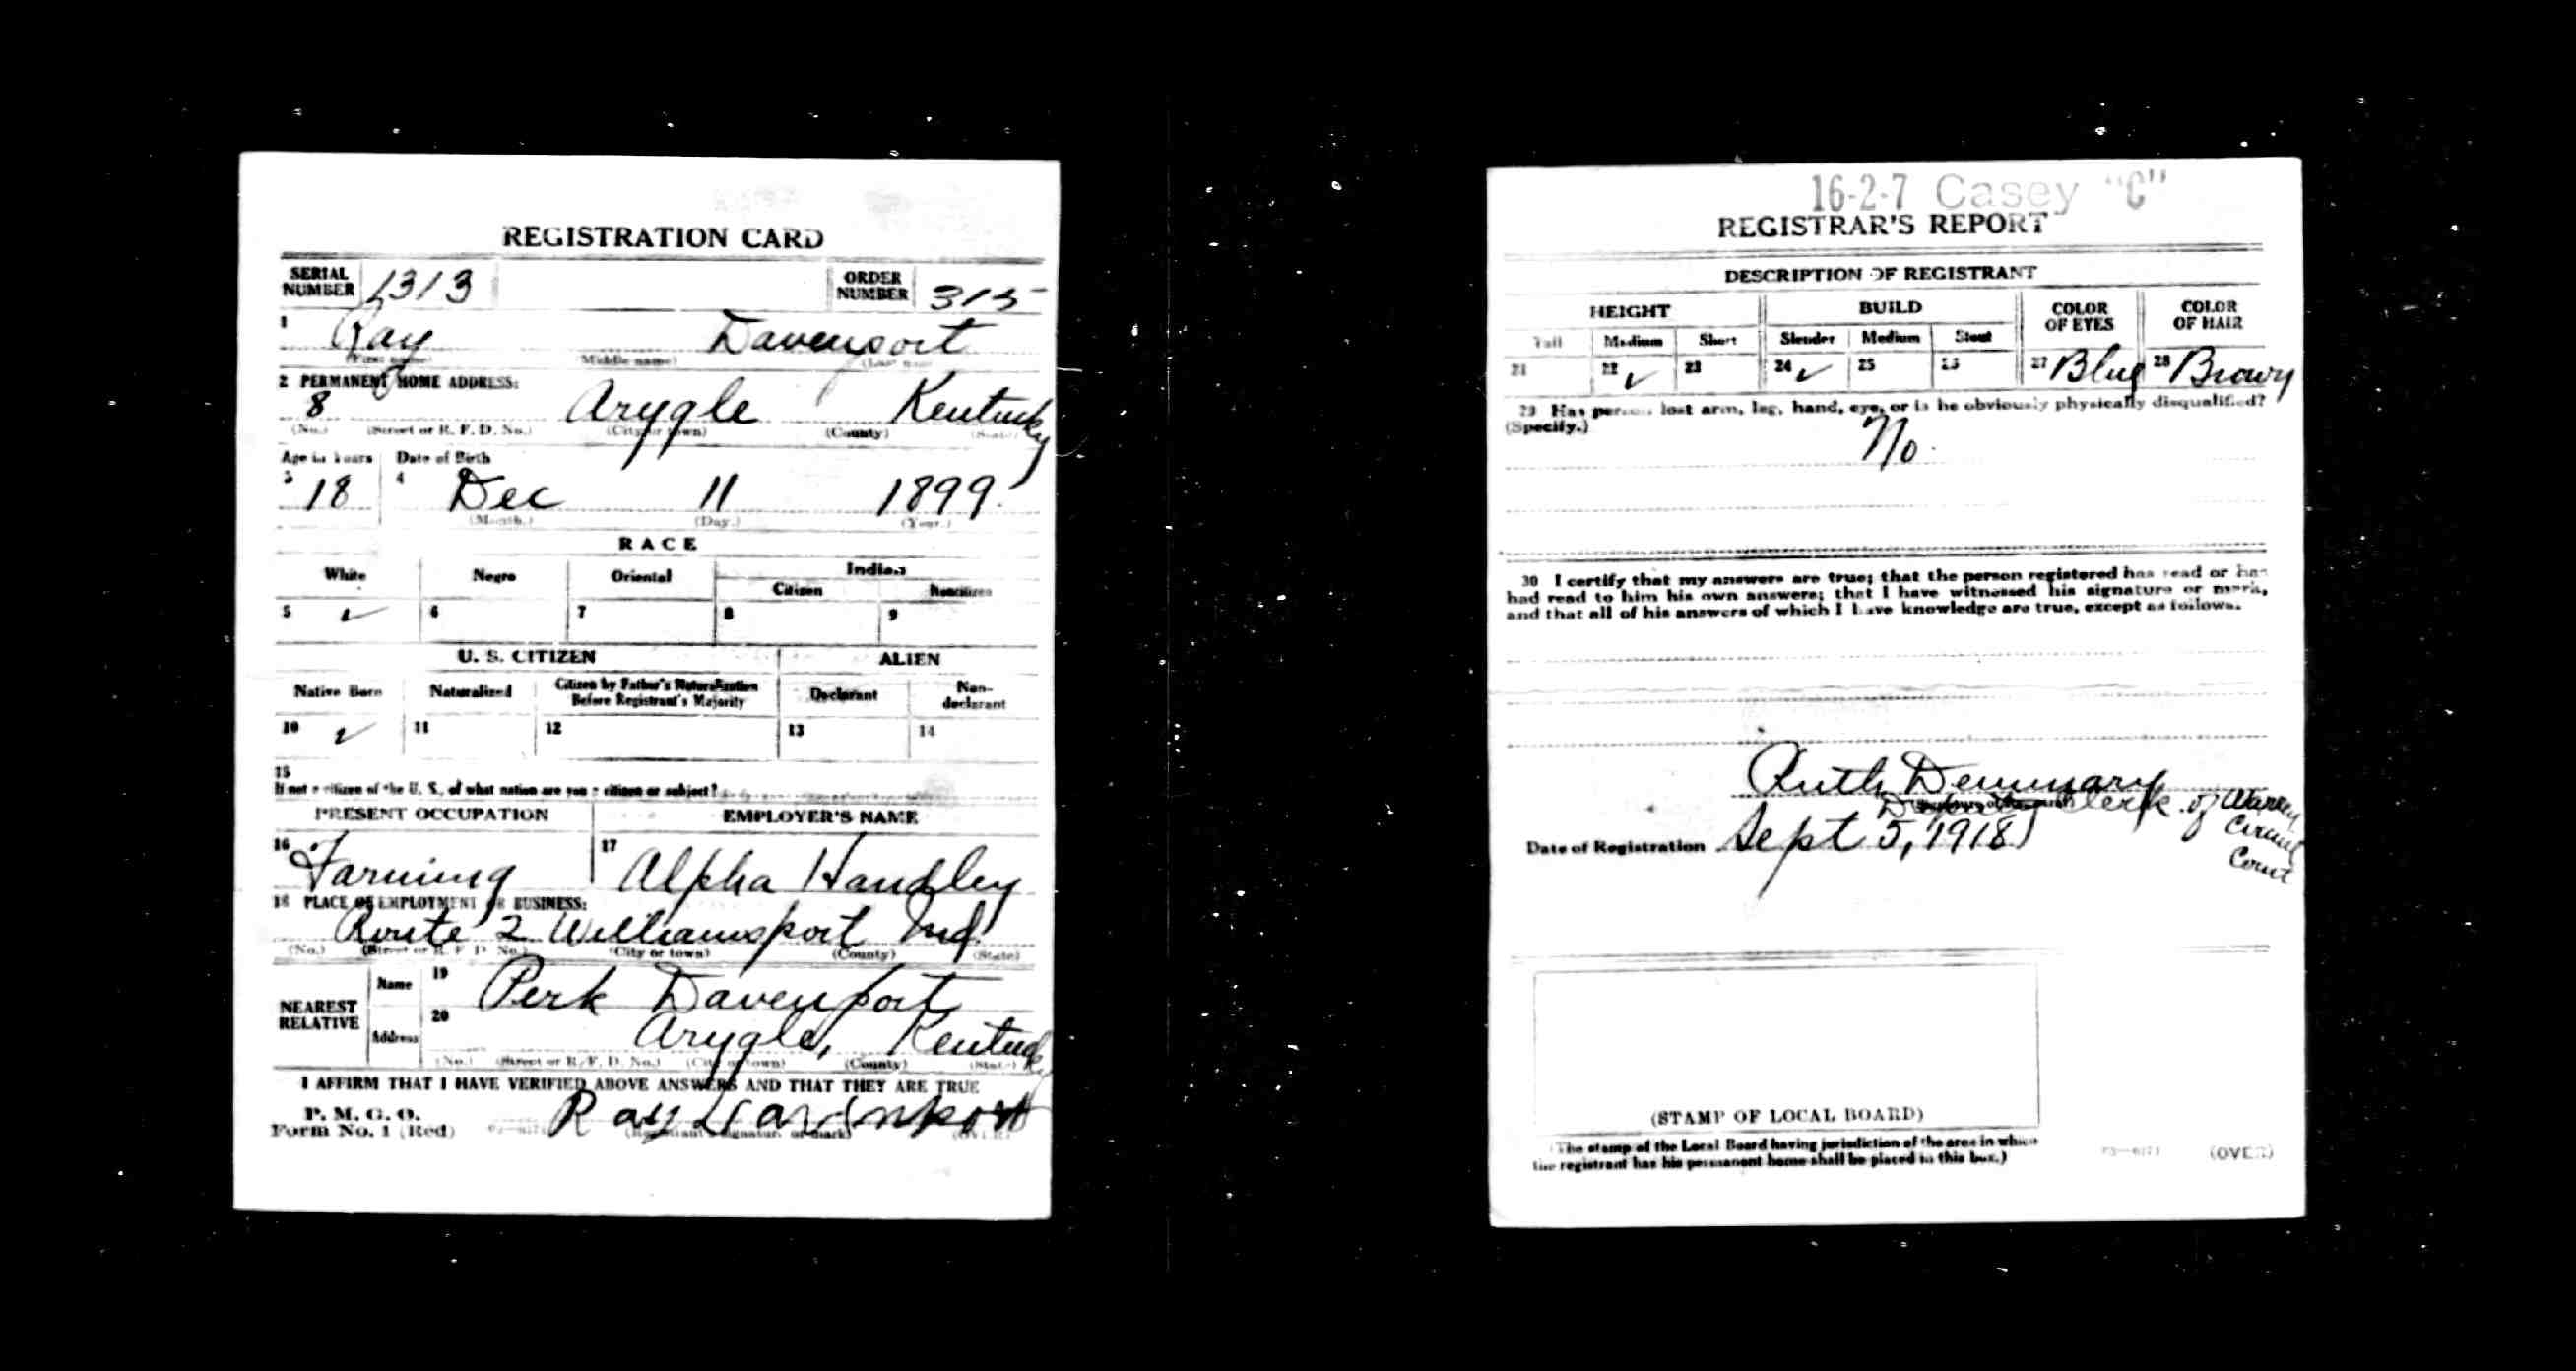 REGISTRATION CARD
SERIAL NUMBER 1313 ORDER NUMBER 315
1 Ray Davenport
(First name) (Middle name) (Last name)
2 PERMANENT HOME ADDRESS:
8 Arygle Kentucky
(No.) (Street or R. F. D. No.) (City or town) (County) (State)
Age in Years Date of Birth
3 18 4 Dec 11 1899
(Month.) (Day.) (Year.)
RACE
White Negro Oriental Indian
Citizen Noncitizen
5 ✓ 6 7 8 9
U. S. CITIZEN ALIEN
Native Born Naturalized Citizen by Father's Naturalization Before Registrant's Majority Declarant Non-declarant
10 ✓ 11 12 13 14
15
If not a citizen of the U. S., of what nation are you a citizen or subject?
PRESENT OCCUPATION EMPLOYER'S NAME
16 Farming 17 Alpha Handley
18 PLACE OF EMPLOYMENT OR BUSINESS:
Route 2 Williamsport Ind.
(No.) (Street or R. F. D. No.) (City or town) (County) (State)
NEAREST RELATIVE
Name 19 Perk Davenport
Address 20 Arygle, Kentucky
(No.) (Street or R. F. D. No.) (City or town) (County) (State)
I AFFIRM THAT I HAVE VERIFIED ABOVE ANSWERS AND THAT THEY ARE TRUE
P. M. G. O.
Form No. 1 (Red) Ray Davenport
(Registrant's signature or mark) (OVER)
16-2-7 Casey "C"
REGISTRAR'S REPORT
DESCRIPTION OF REGISTRANT
HEIGHT BUILD COLOR OF EYES COLOR OF HAIR
Tall Medium Short Slender Medium Stout
21 22 ✓ 23 24 ✓ 25 26 27 Blue 28 Brown
29 Has person lost arm, leg, hand, eye, or is he obviously physically disqualified?
(Specify.) No.
30 I certify that my answers are true; that the person registered has read or has
had read to him his own answers; that I have witnessed his signature or mark,
and that all of his answers of which I have knowledge are true, except as follows.
Ruth
Deputy Clerk of Warren
Circuit
Court
Date of Registration Sept 5, 1918
(STAMP OF LOCAL BOARD)
(The stamp of the Local Board having jurisdiction of the area in which
the registrant has his permanent home shall be placed in this box.)
(OVER)